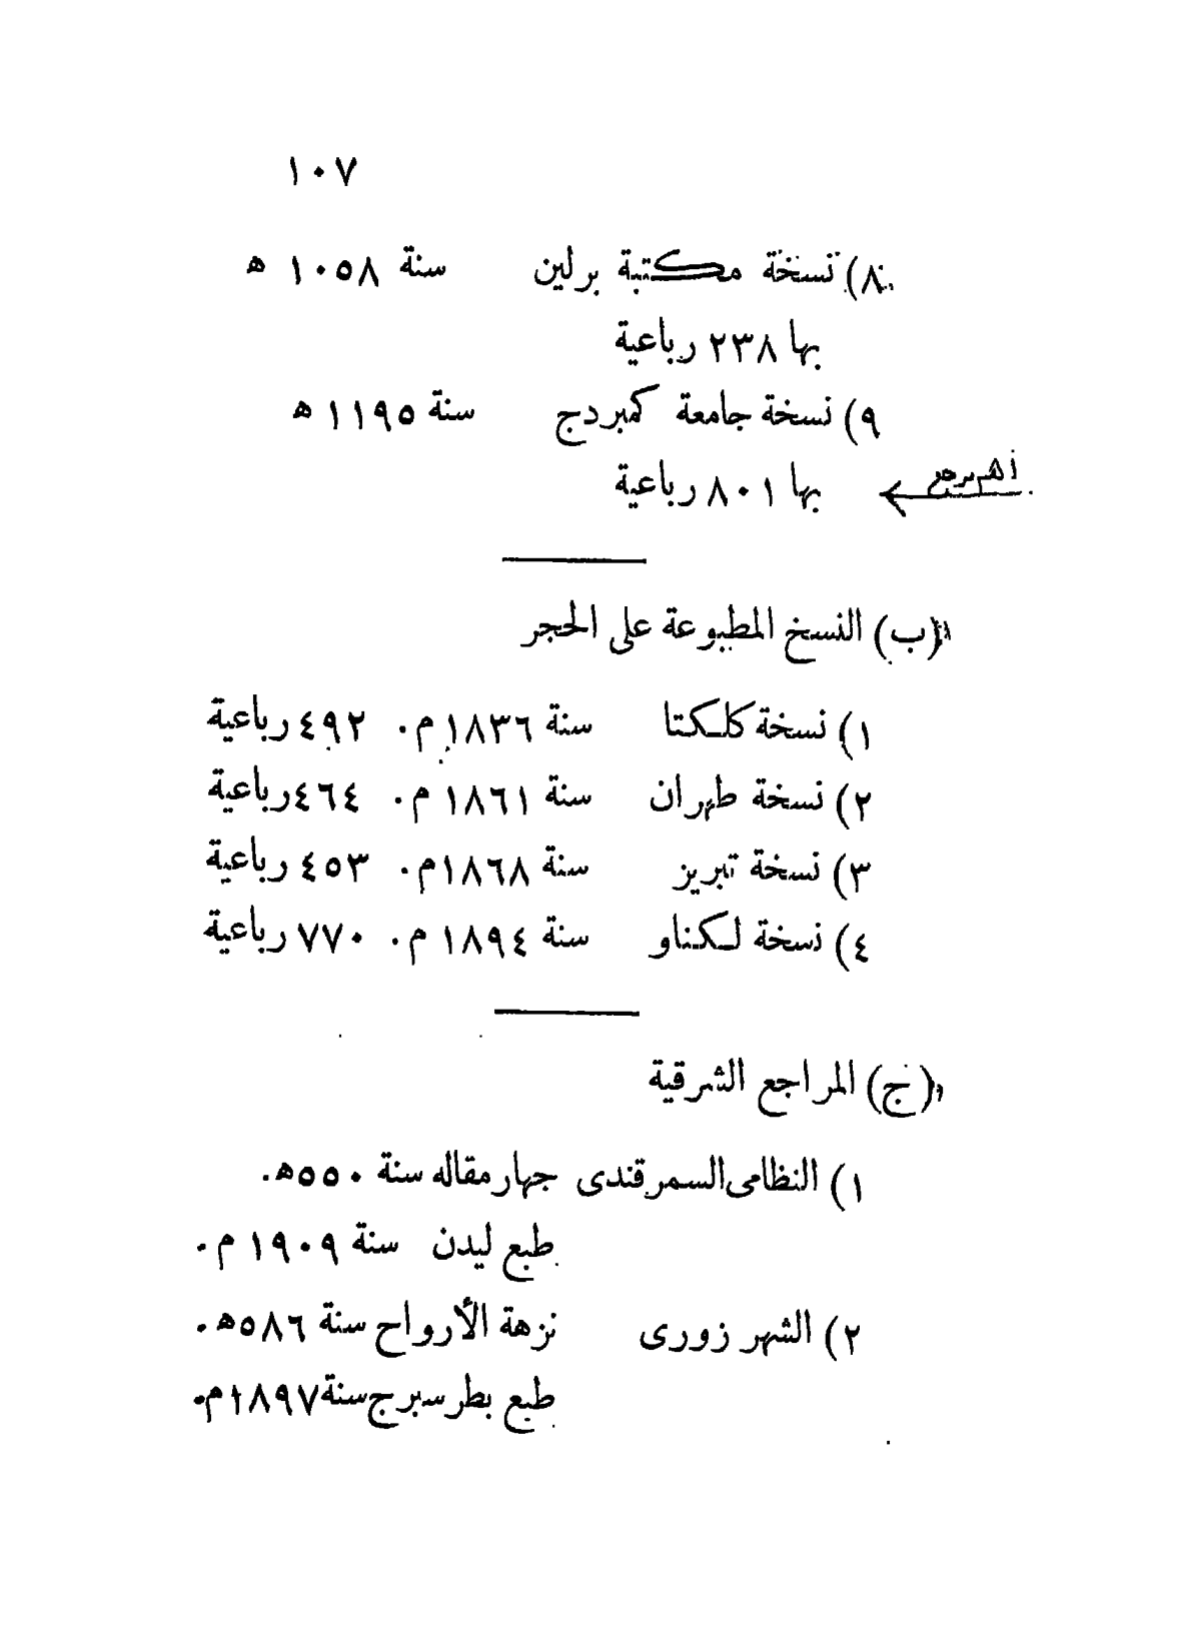 ١٠٧
٨) نسخة مكتبة برلين سنة ١٠٥٨ ه
بها ٢٣٨ رباعية
٩) نسخة جامعة كمبردج سنة ١١٩٥ ه
أهم مرجع
بها ٨٠١ رباعية
(ب) النسخ المطبوعة على الحجر
١) نسخة كلكتا سنة ١٨٣٦ م. ٤٩٢ رباعية
٢) نسخة طهران سنة ١٨٦١ م. ٤٦٤ رباعية
٣) نسخة تبريز سنة ١٨٦٨ م. ٤٥٣ رباعية
٤) نسخة لكناو سنة ١٨٩٤ م. ٧٧٠ رباعية
(ج) المراجع الشرقية
١) النظامى السمرقندى جهار مقاله سنة ٥٥٠ ه.
طبع ليدن سنة ١٩٠٩ م.
٢) الشهر زورى نزهة الأرواح سنة ٥٨٦ ه.
طبع بطرسبرج سنة ١٨٩٧ م.